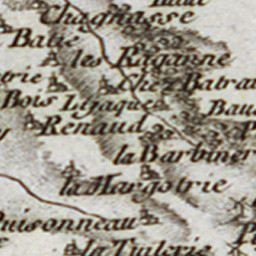 Chagnasse
Batie
les Raganne
trie
Chez Batra
Bois Ligaque
Bau
Renaud
la Barbiner
la Margotrie
Puisonneau
la Tuilerie